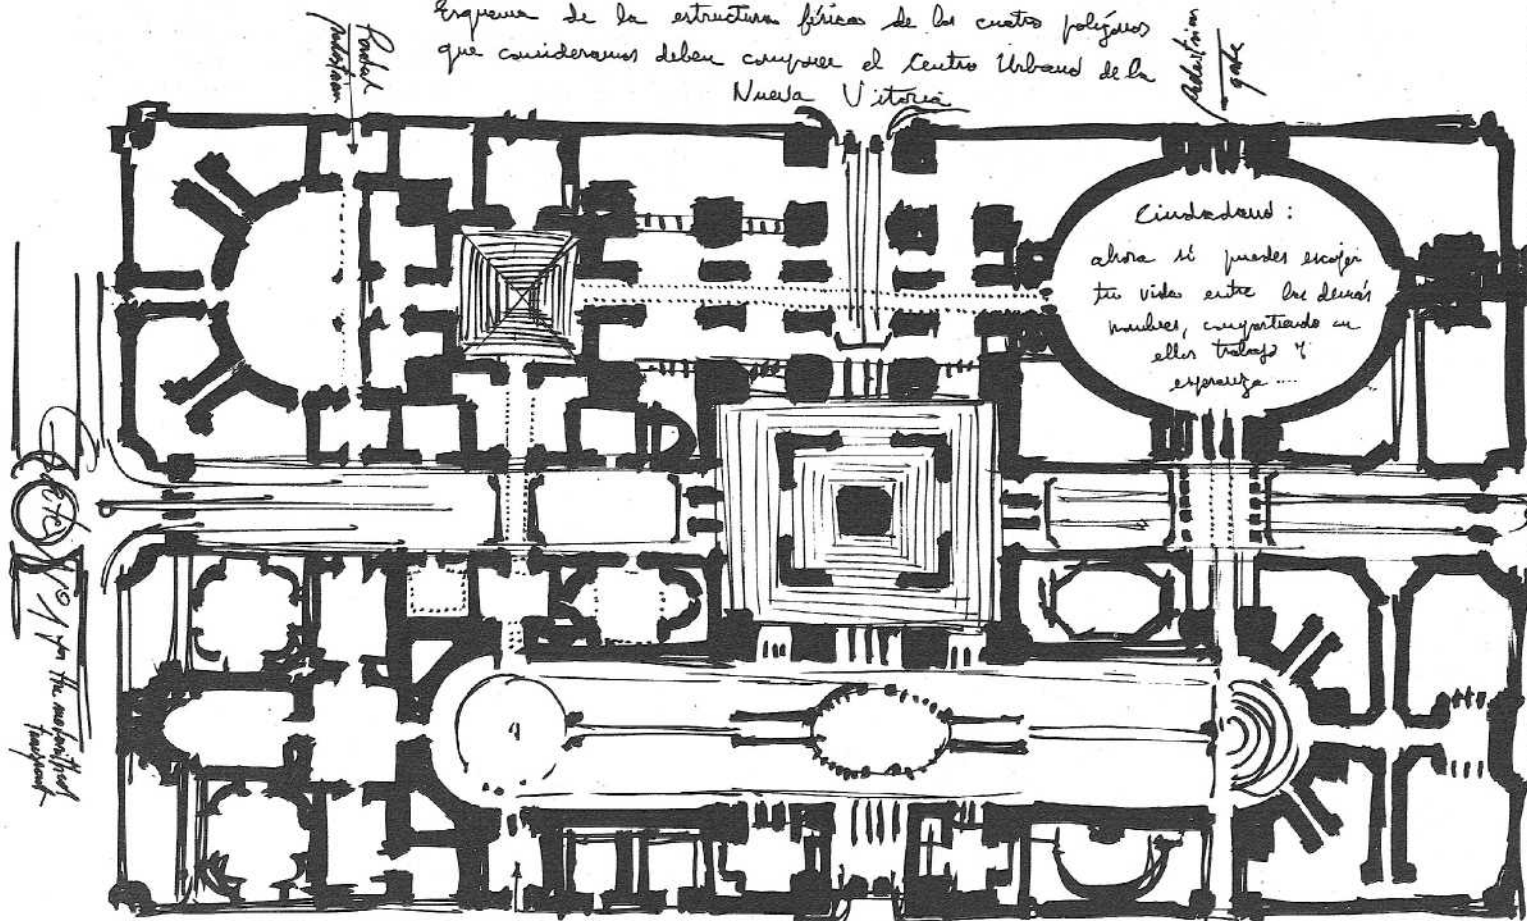 Esquema de la estructura física de los cuatro polígonos
que consideramos deben componer el Centro Urbano de la
Nueva Vitoria
pedestrian
gate
Ciudadano:
ahora si puedes escojer
tu vida entre los demás
hombres, compartiendo con
ellos trabajo y
esperanza ....
Gate Nº 1 for the motorified
transport